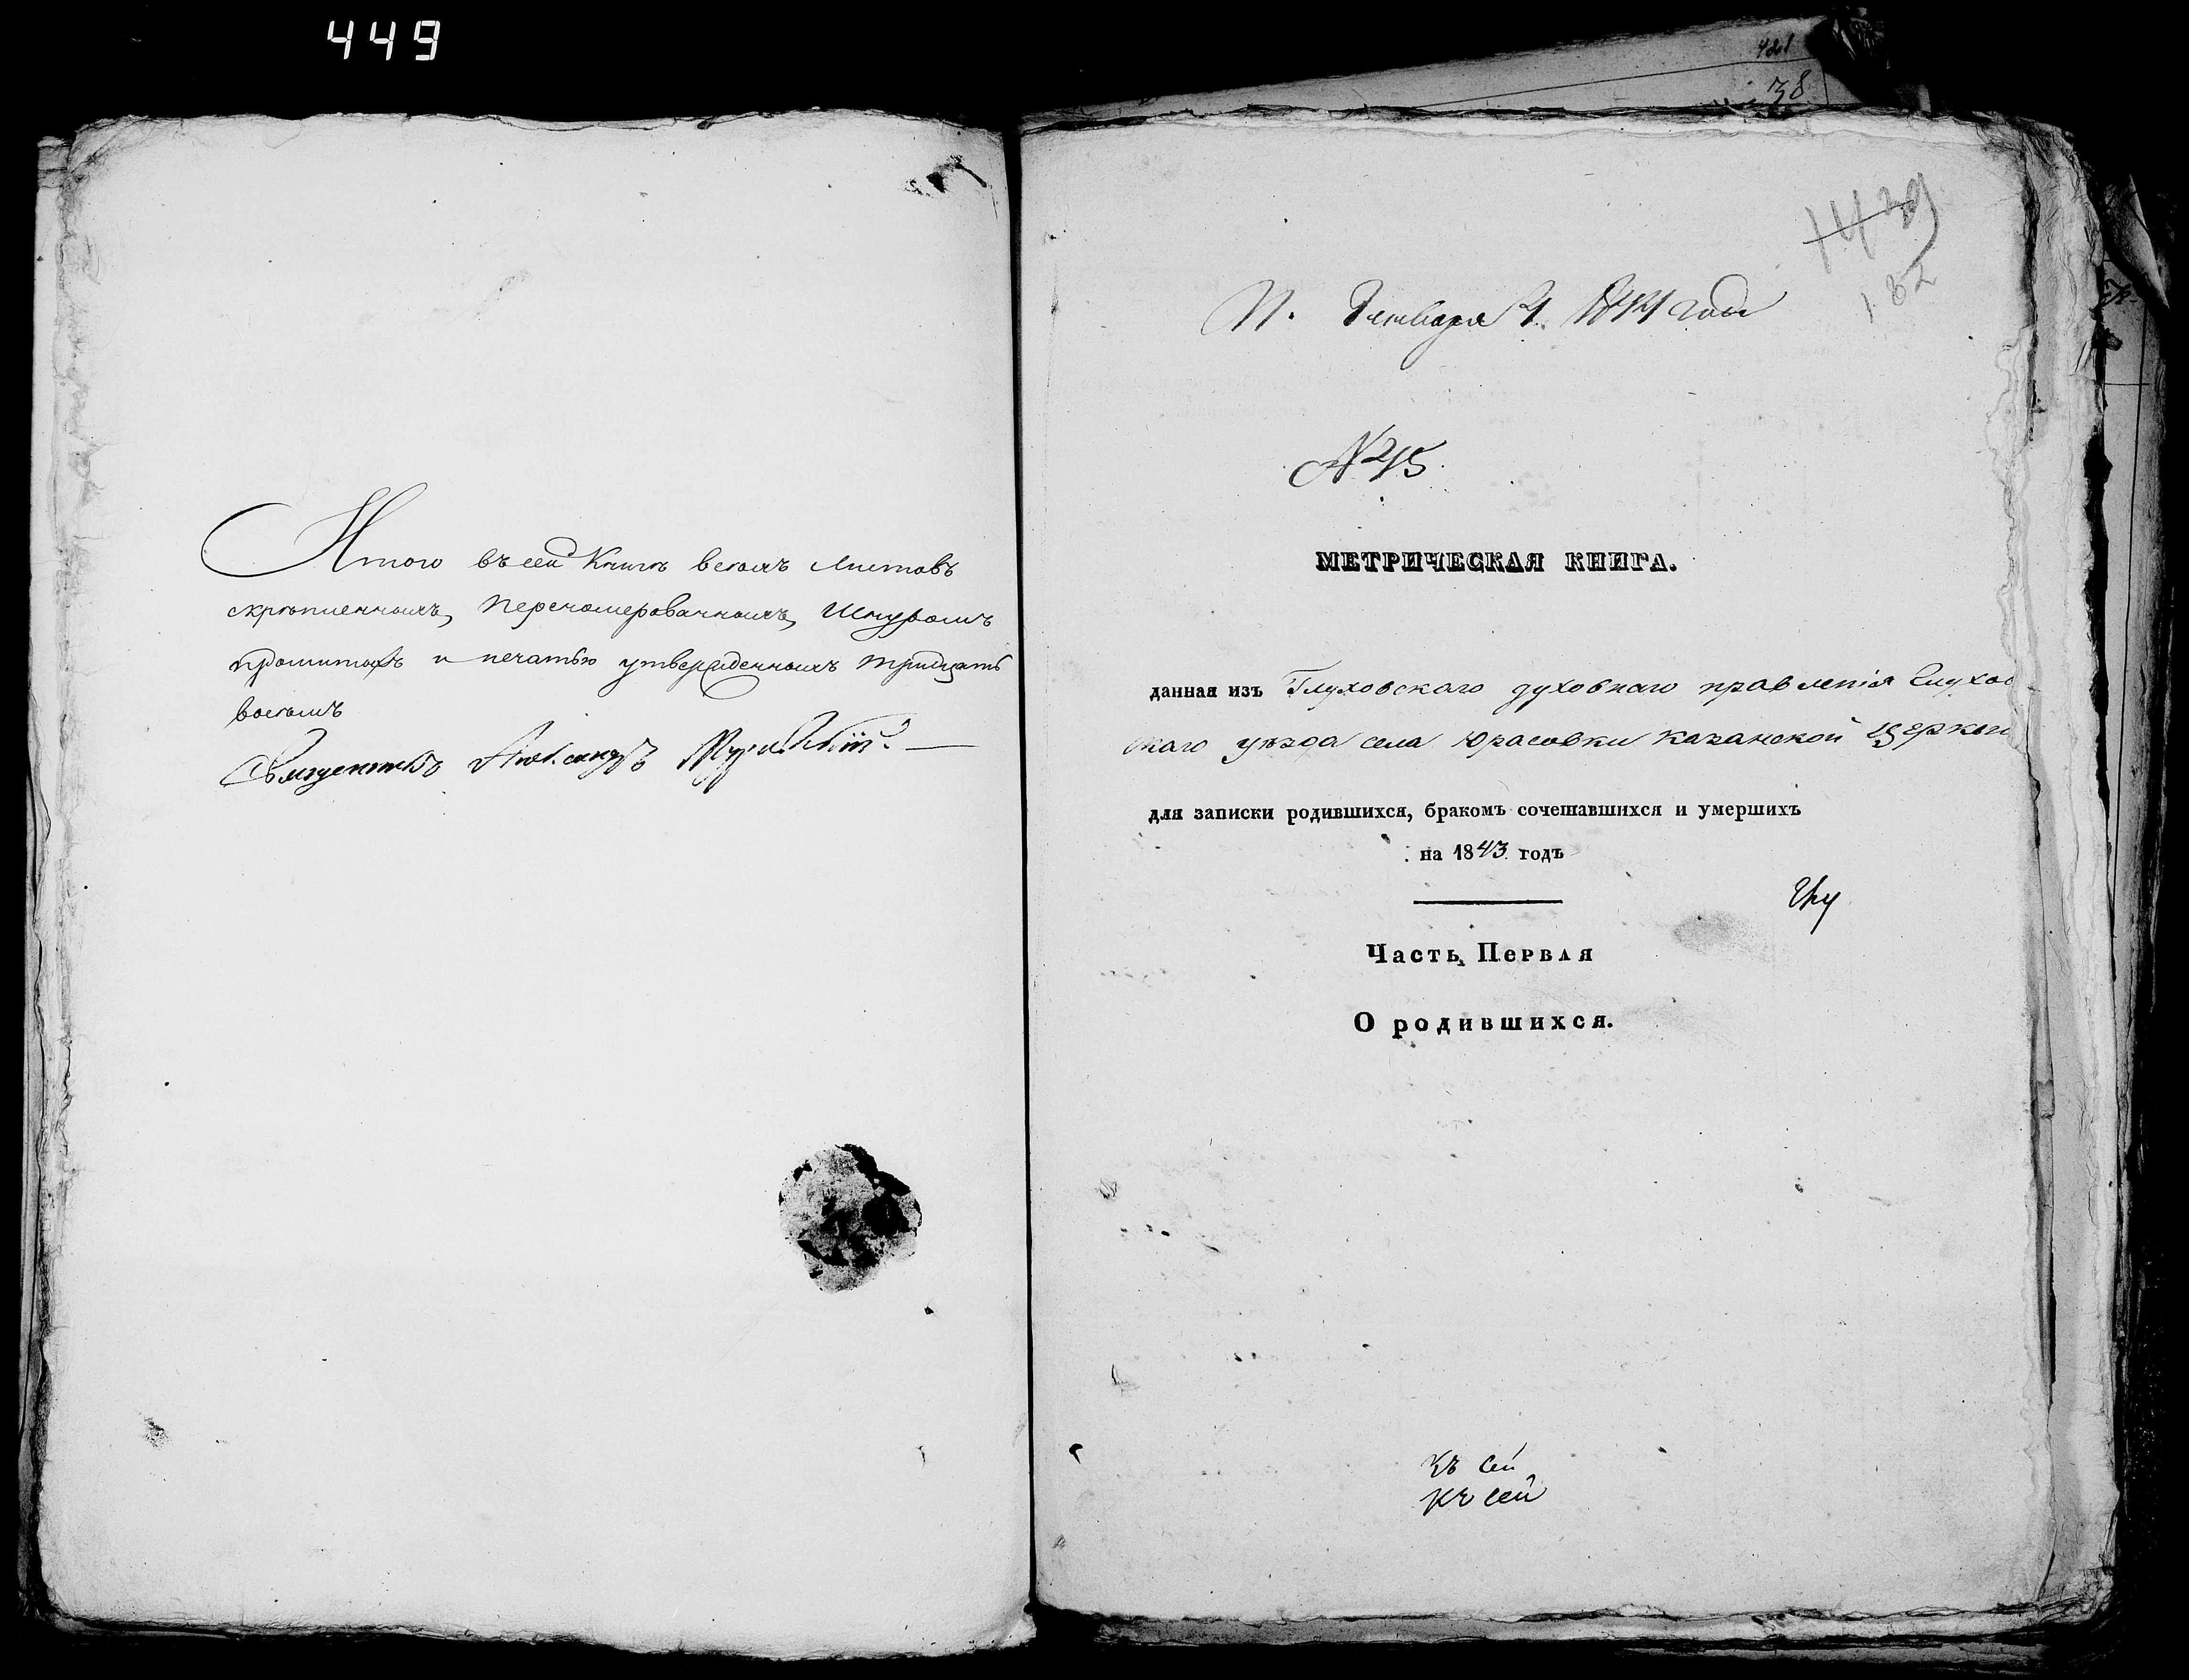 449
Итого въ сей Книгѣ всѣхъ листовъ
скрѣпленныхъ, перенумерованныхъ, Шнуромъ
прошитыхъ и печатью утвержденныхъ тридцать
восемь
Священникъ Александръ
421
38
1439
132
П. Января 4. 1844 года
№ 45
МЕТРИЧЕСКАЯ КНИГА.
данная изъ Глуховскаго духовнаго правленія Глухов
скаго уѣзда села Юрасовки Казанской Церкви
для записки родившихся, бракомъ сочетавшихся и умершихъ
на 1843 годъ
Часть Первая
О родившихся.
къ сей
къ сей